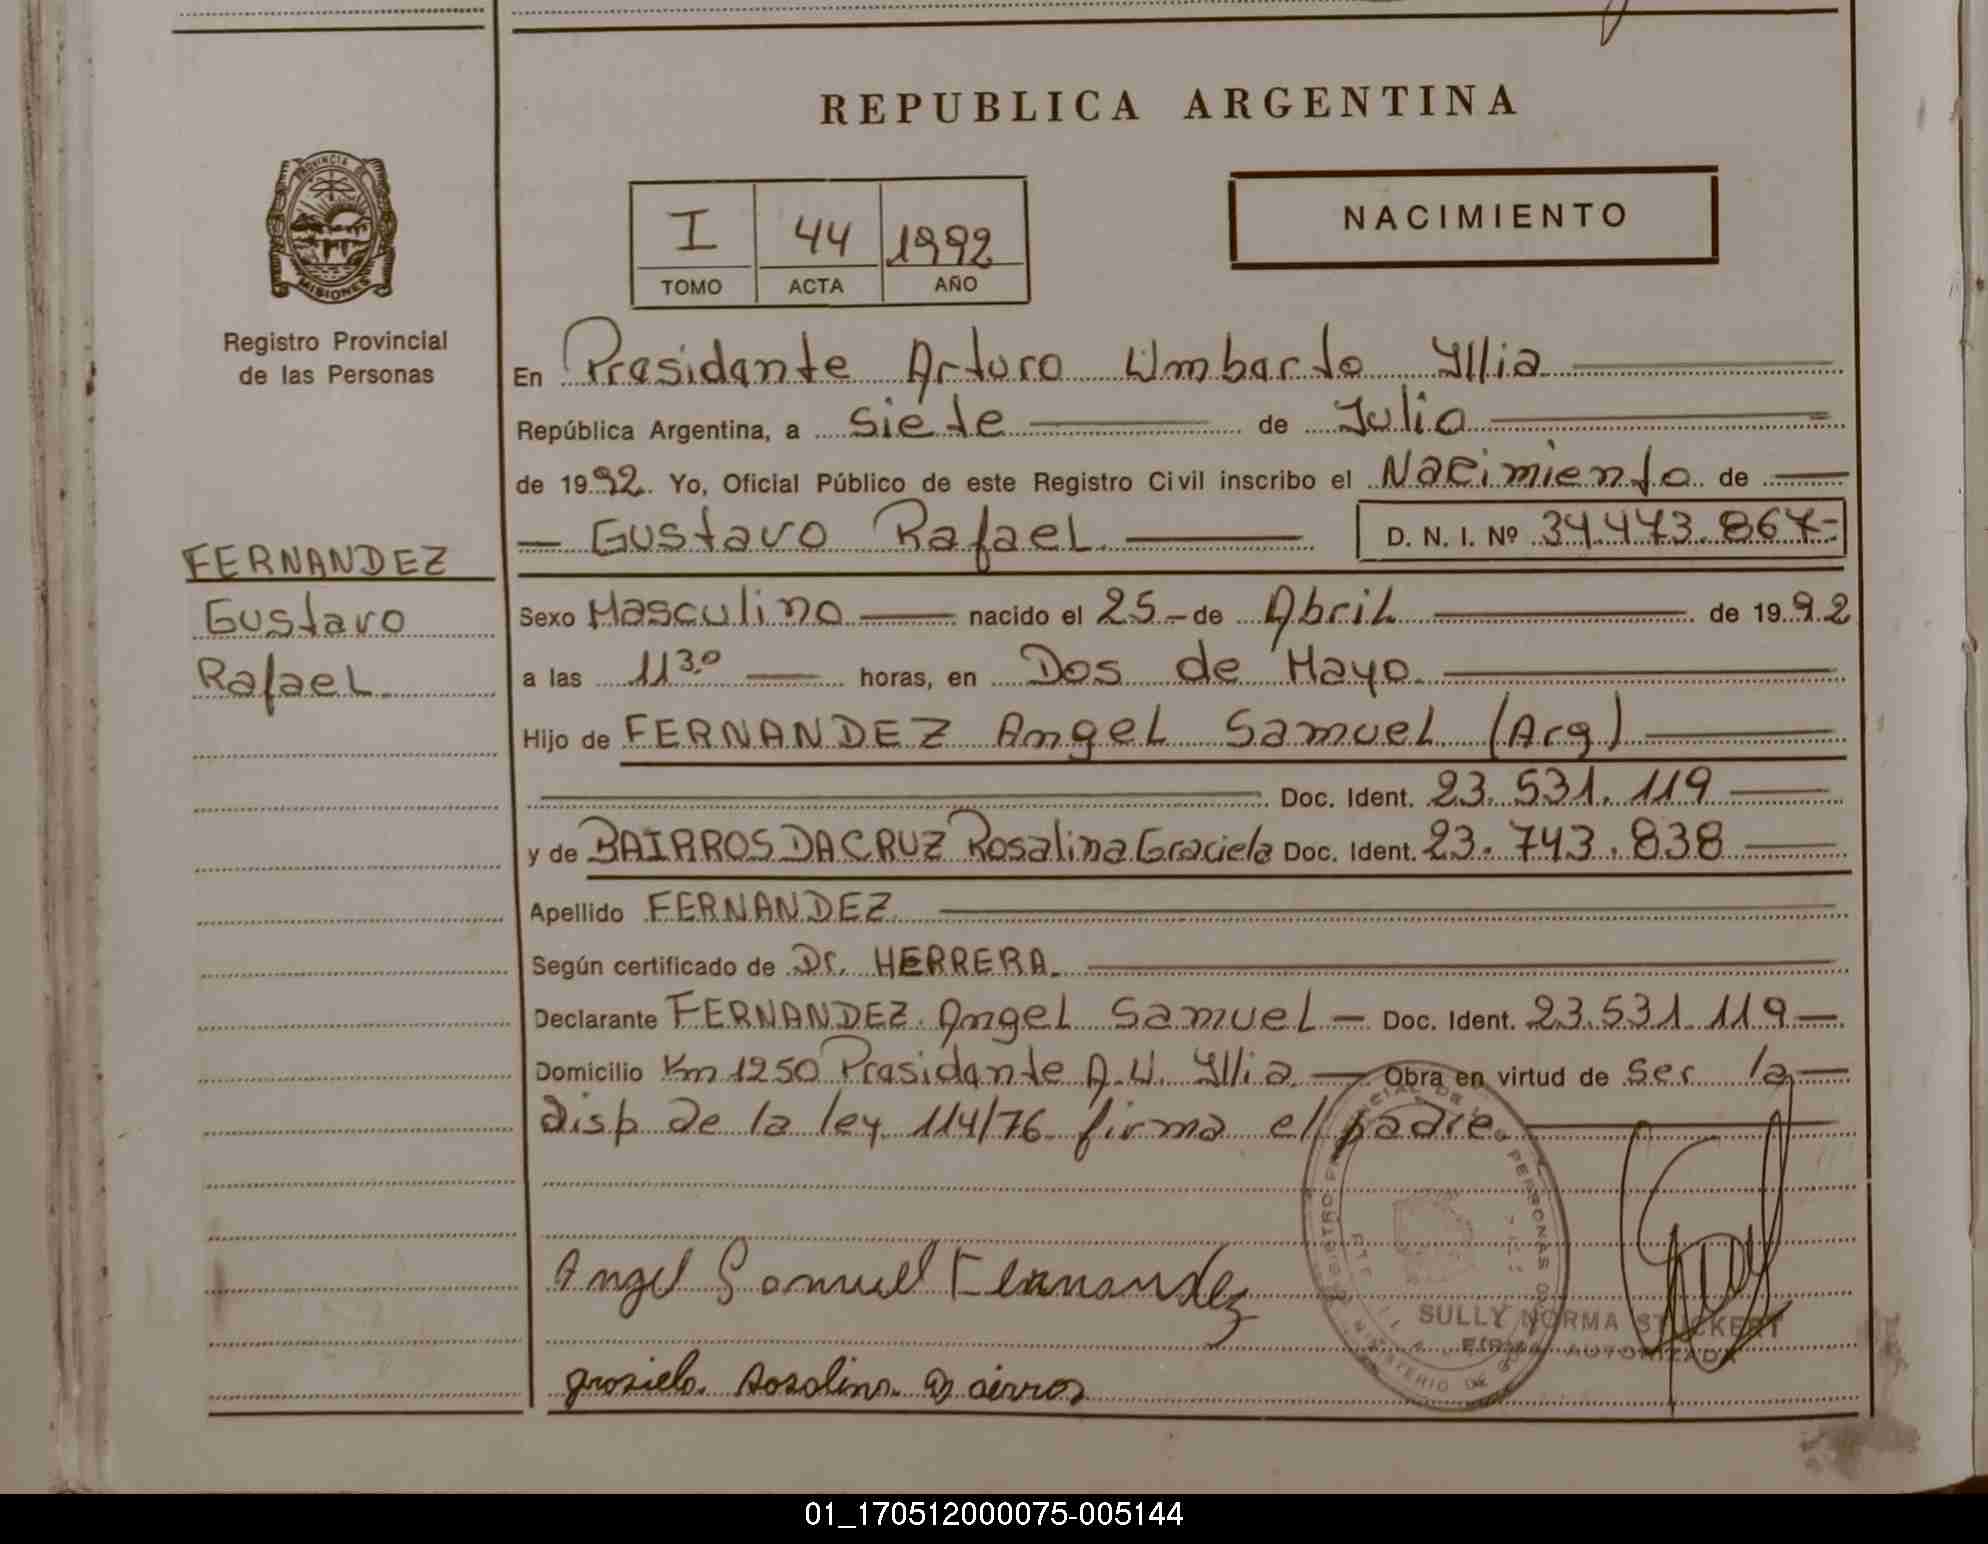 REPUBLICA ARGENTINA
PROVINCIA DE
MISIONES
Registro Provincial
de las Personas
I 44 1992
TOMO ACTA AÑO
NACIMIENTO
En Presidente Arturo Umberto Yllia
República Argentina, a siete de Julio
de 1992. Yo, Oficial Público de este Registro Civil inscribo el Nacimiento de
Gustavo Rafael D. N. I. Nº 34.473.867-
FERNANDEZ
Gustavo
Rafael
Sexo Masculino nacido el 25 - de Abril de 1992
a las 11³⁰ horas, en Dos de Mayo
Hijo de FERNANDEZ Angel Samuel (Arg)
Doc. Ident. 23.531.119
y de BAIRROS DA CRUZ Rosalina Graciela Doc. Ident. 23.743.838
Apellido FERNANDEZ
Según certificado de Dr. HERRERA.
Declarante FERNANDEZ Angel Samuel - Doc. Ident. 23.531.119 -
Domicilio Km 1250 Presidente A.U. Yllia - Obra en virtud de ser la -
disp de la ley 114/76 firma el padre.
Angel Samuel Fernandez
SULLY NORMA STUCKERT
FIRMA AUTORIZADA
grosiela Rosalina Bairros
01_170512000075-005144